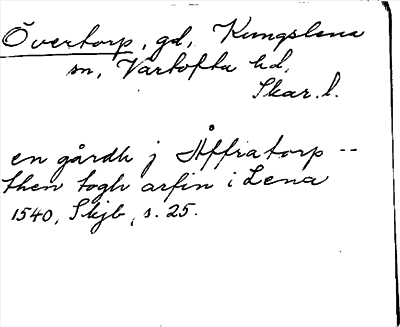 Övertorp, gd, Kungslena
sn, Vartofta hd,
Skar. l.
en gårdh j Åffratorp --
then togh arfin i Lena
1540, Skjb, s. 25.